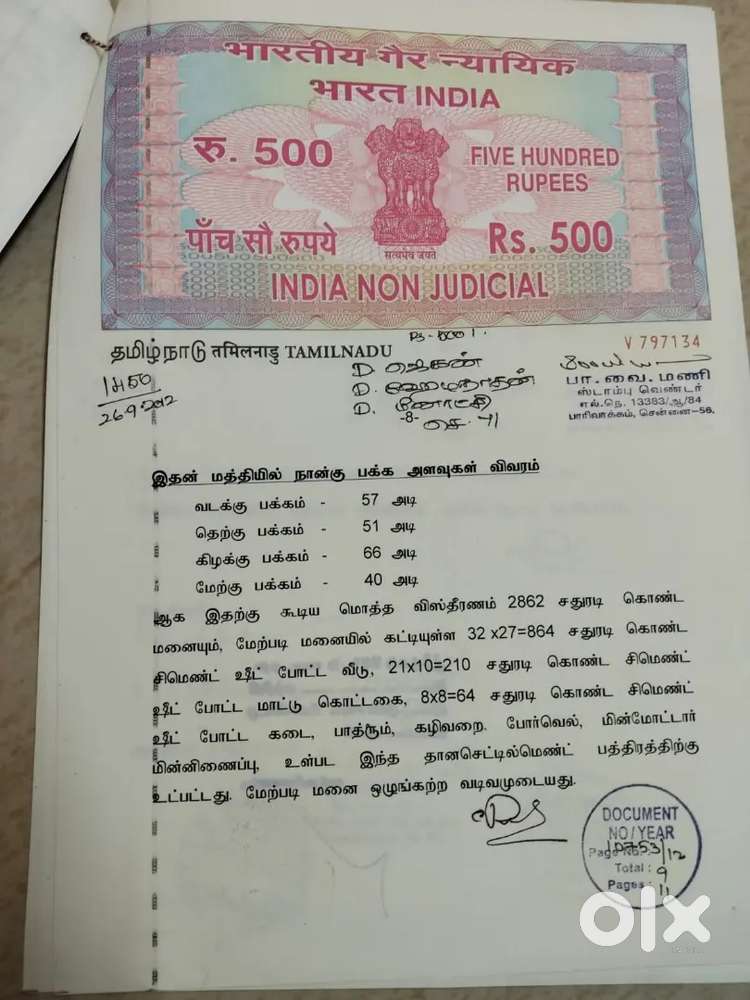 भारतीय गैर न्यायिक
भारत INDIA
रु. 500
FIVE HUNDRED
RUPEES
सत्यमेव जयते
पाँच सौ रुपये
Rs. 500
INDIA NON JUDICIAL
தமிழ்நாடு तमिलनाडु TAMILNADU
V 797134
26.9.2012
D.
D.
D.
-8-
பா. வை. மணி
ஸ்டாம்பு வெண்டர்
எல்.நெ. 13383/ஆ/84
பாரிவாக்கம், சென்னை-56.
இதன் மத்தியில் நான்கு பக்க அளவுகள் விவரம்
வடக்கு பக்கம் - 57 அடி
தெற்கு பக்கம் - 51 அடி
கிழக்கு பக்கம் - 66 அடி
மேற்கு பக்கம் - 40 அடி
ஆக இதற்கு கூடிய மொத்த விஸ்தீரணம் 2862 சதுரடி கொண்ட
மனையும், மேற்படி மனையில் கட்டியுள்ள 32 x27=864 சதுரடி கொண்ட
சிமெண்ட் ஷீட் போட்ட வீடு, 21x10=210 சதுரடி கொண்ட சிமெண்ட்
ஷீட் போட்ட மாட்டு கொட்டகை, 8x8=64 சதுரடி கொண்ட சிமெண்ட்
ஷீட் போட்ட கடை, பாத்ரூம், கழிவறை. போர்வெல், மின்மோட்டார்
மின்னிணைப்பு, உள்பட இந்த தானசெட்டில்மெண்ட் பத்திரத்திற்கு
உட்பட்டது. மேற்படி மனை ஒழுங்கற்ற வடிவமுடையது.
DOCUMENT
NO/YEAR
10753/12
Page No.:
Total : 9
Pages : 11
olx